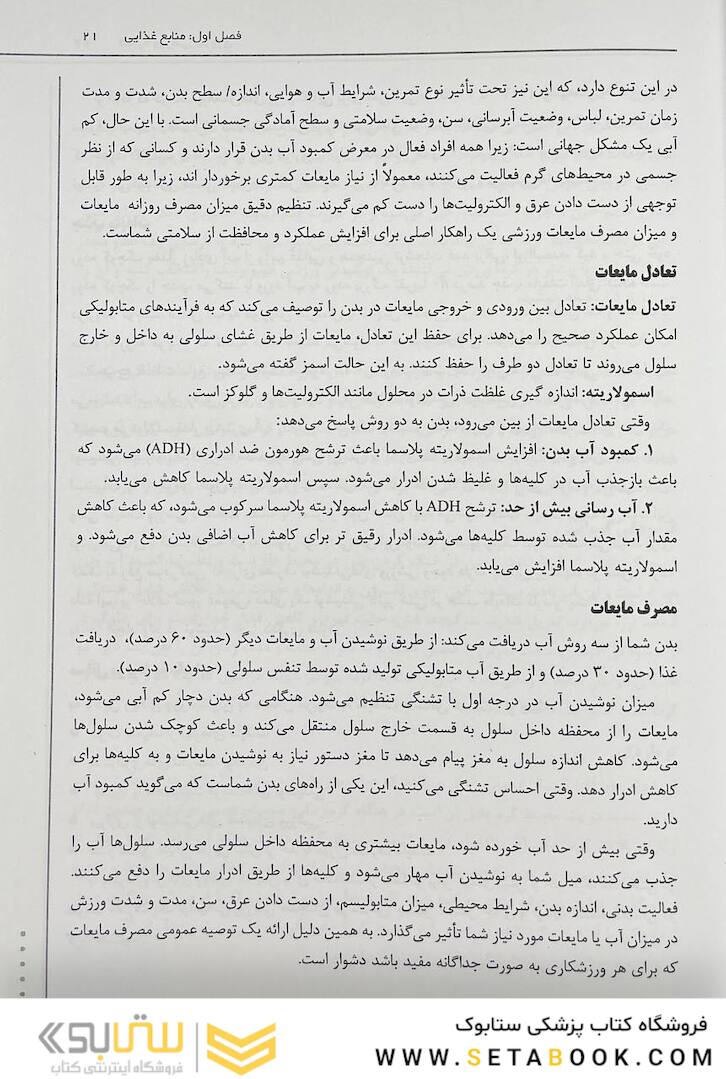 فصل اول: منابع غذایی ۲۱
در این تنوع دارد، که این نیز تحت تأثیر نوع تمرین، شرایط آب و هوایی، اندازه/ سطح بدن، شدت و مدت
زمان تمرین، لباس، وضعیت آبرسانی، سن، وضعیت سلامتی و سطح آمادگی جسمانی است. با این حال، کم
آبی یک مشکل جهانی است: زیرا همه افراد فعال در معرض کمبود آب بدن قرار دارند و کسانی که از نظر
جسمی در محیط‌های گرم فعالیت می‌کنند، معمولاً از نیاز مایعات کمتری برخوردار اند، زیرا به طور قابل
توجهی از دست دادن عرق و الکترولیت‌ها را دست کم می‌گیرند. تنظیم دقیق میزان مصرف روزانه مایعات
و میزان مصرف مایعات ورزشی یک راهکار اصلی برای افزایش عملکرد و محافظت از سلامتی شماست.
تعادل مایعات
تعادل مایعات: تعادل بین ورودی و خروجی مایعات در بدن را توصیف می‌کند که به فرآیندهای متابولیکی
امکان عملکرد صحیح را می‌دهد. برای حفظ این تعادل، مایعات از طریق غشای سلولی به داخل و خارج
سلول می‌روند تا تعادل دو طرف را حفظ کنند. به این حالت اسمز گفته می‌شود.
اسمولاریته: اندازه گیری غلظت ذرات در محلول مانند الکترولیت‌ها و گلوکز است.
وقتی تعادل مایعات از بین می‌رود، بدن به دو روش پاسخ می‌دهد:
۱. کمبود آب بدن: افزایش اسمولاریته پلاسما باعث ترشح هورمون ضد ادراری (ADH) می‌شود که
باعث بازجذب آب در کلیه‌ها و غلیظ شدن ادرار می‌شود. سپس اسمولاریته پلاسما کاهش می‌یابد.
۲. آب رسانی بیش از حد: ترشح ADH با کاهش اسمولاریته پلاسما سرکوب می‌شود، که باعث کاهش
مقدار آب جذب شده توسط کلیه‌ها می‌شود. ادرار رقیق تر برای کاهش آب اضافی بدن دفع می‌شود. و
اسمولاریته پلاسما افزایش می‌یابد.
مصرف مایعات
بدن شما از سه روش آب دریافت می‌کند: از طریق نوشیدن آب و مایعات دیگر (حدود ۶۰ درصد)، دریافت
غذا (حدود ۳۰ درصد) و از طریق آب متابولیکی تولید شده توسط تنفس سلولی (حدود ۱۰ درصد).
میزان نوشیدن آب در درجه اول با تشنگی تنظیم می‌شود. هنگامی که بدن دچار کم آبی می‌شود،
مایعات را از محفظه داخل سلول به قسمت خارج سلول منتقل می‌کند و باعث کوچک شدن سلول‌ها
می‌شود. کاهش اندازه سلول به مغز پیام می‌دهد تا مغز دستور نیاز به نوشیدن مایعات و به کلیه‌ها برای
کاهش ادرار دهد. وقتی احساس تشنگی می‌کنید، این یکی از راه‌های بدن شماست که می‌گوید کمبود آب
دارید.
وقتی بیش از حد آب خورده شود، مایعات بیشتری به محفظه داخل سلولی می‌رسد. سلول‌ها آب را
جذب می‌کنند، میل شما به نوشیدن آب مهار می‌شود و کلیه‌ها از طریق ادرار مایعات را دفع می‌کنند.
فعالیت بدنی، اندازه بدن، شرایط محیطی، میزان متابولیسم، از دست دادن عرق، سن، مدت و شدت ورزش
در میزان آب یا مایعات مورد نیاز شما تأثیر می‌گذارد. به همین دلیل ارائه یک توصیه عمومی مصرف مایعات
که برای هر ورزشکاری به صورت جداگانه مفید باشد دشوار است.
فروشگاه کتاب پزشکی ستابوک
WWW.SETABOOK.COM
ستابوک
فروشگاه اینترنتی کتاب